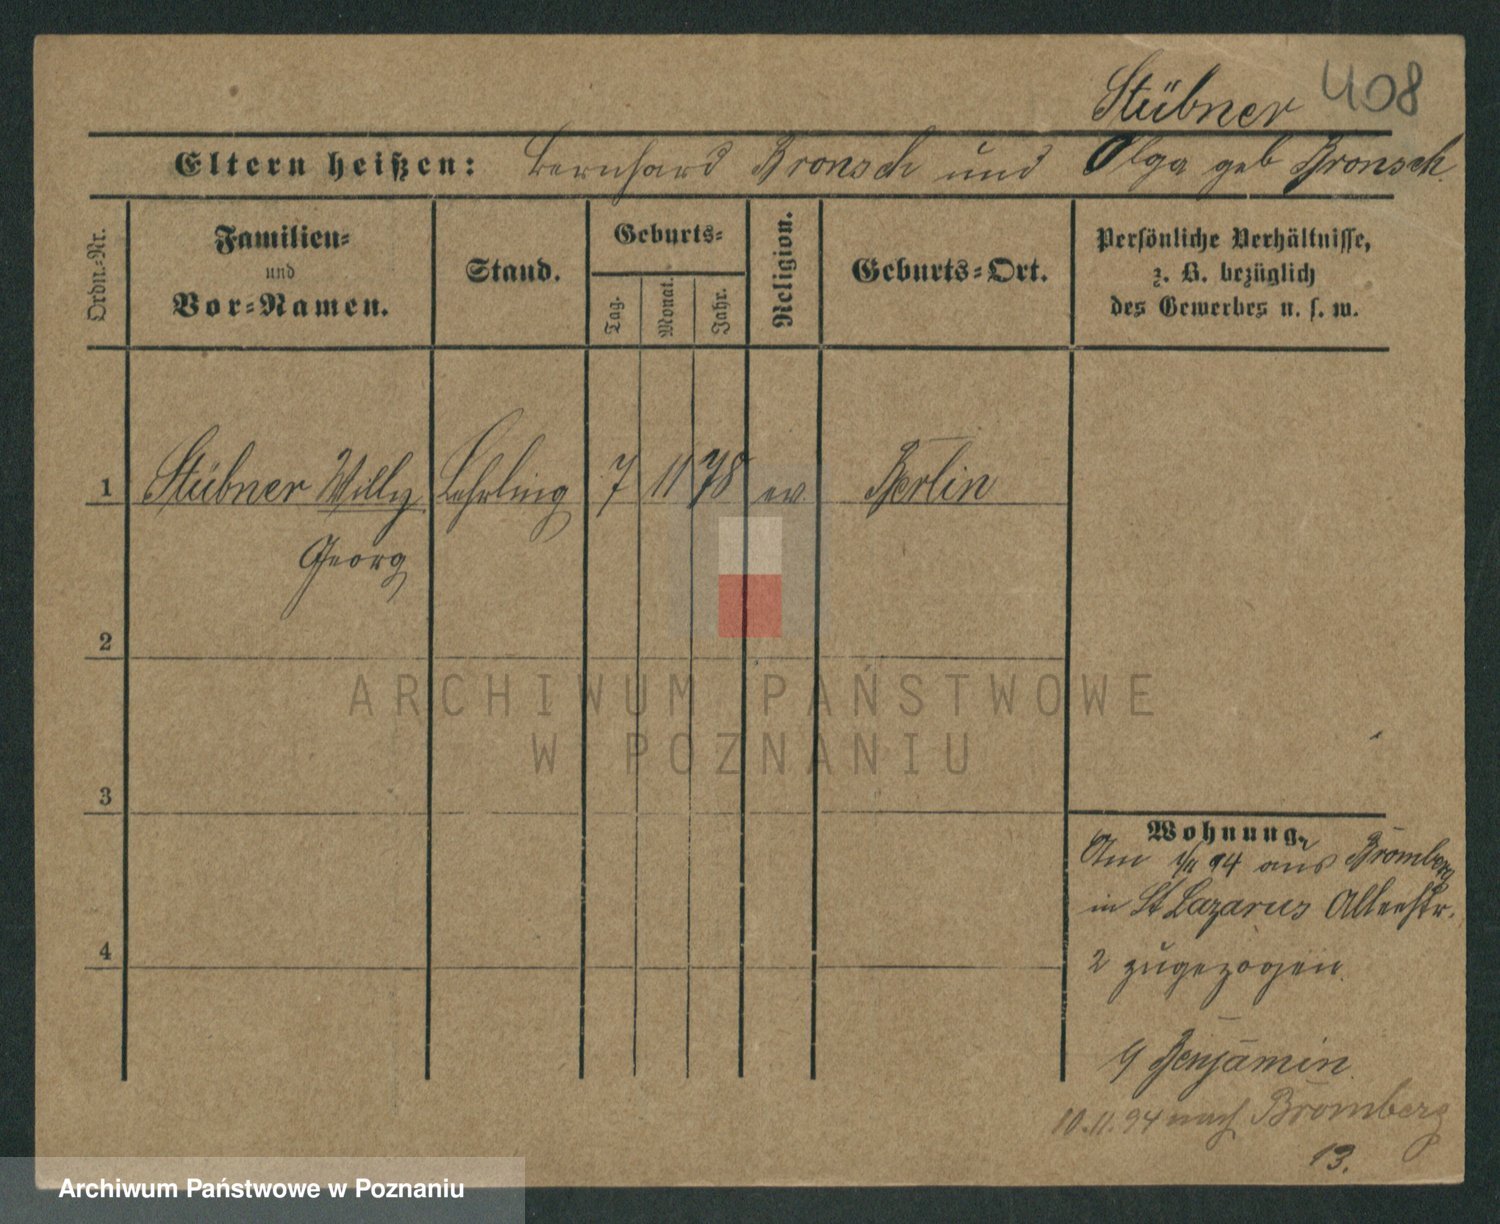 Stübner 408
Eltern heißen: Bernhard Bronsch und Olga geb Bronsch.
Ordn.-Nr.
Familien-
und
Vor-Namen.
Stand.
Geburts-
Tag.
Monat.
Jahr.
Religion.
Geburts-Ort.
Persönliche Verhältnisse,
z. B. bezüglich
des Gewerbes u. s. w.
1 Stübner Willy Lehrling 7 11 78 ev Berlin
Georg
2
3
4
Wohnung.
Am 1/11 94 aus Bromberg
in St Lazarus Alleestr.
2 zugezogen.
Benjamin
10.11.94 nach Bromberg
13.
ARCHIWUM PAŃSTWOWE
W POZNANIU
Archiwum Państwowe w Poznaniu